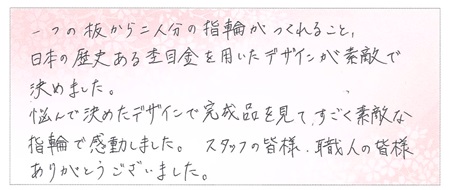 一つの板から二人分の指輪がつくれること,
日本の歴史ある杢目金を用いたデザインが素敵で
決めました。
悩んで決めたデザインで完成品を見て、すごく素敵な
指輪で感動しました。 スタッフの皆様、職人の皆様
ありがとうございました。